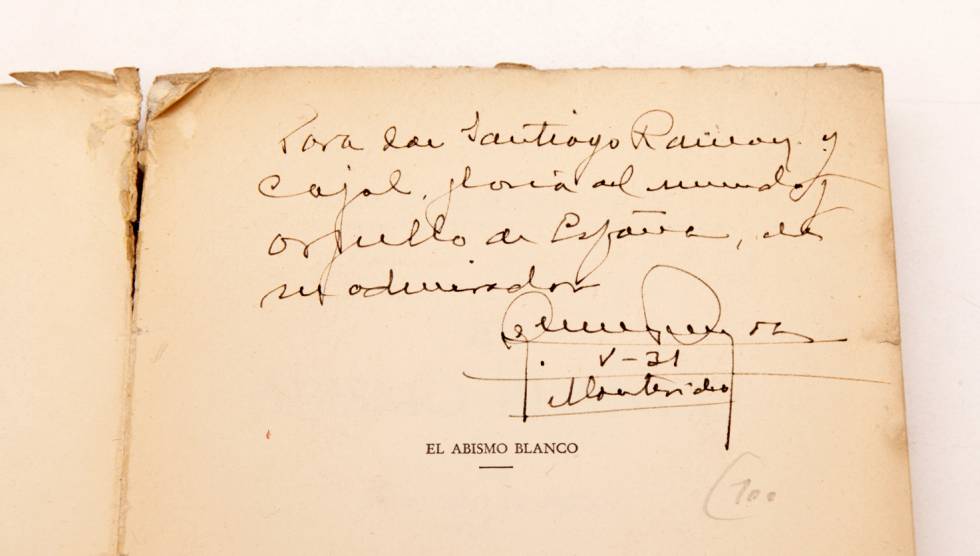 Para don Santiago Ramón y
Cajal, gloria del mundo y
orgullo de España, de
su admirador
V-31
Montevideo
EL ABISMO BLANCO
100